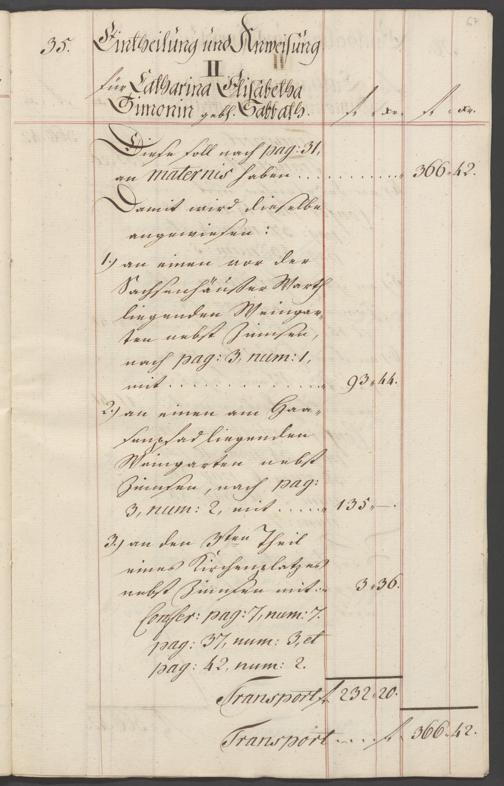 67
35. Eintheilung und Anweisung
II
für Catharina Elisabetha
Simonin gebh. Sabbath.
f. xr. f. xr.
Diese soll nach pag: 31,
an maternus haben . . . . . . . . . . 366. 42.
Damit wird dieselbe
angewiesen:
1.) an einen vor der
Sachsenhäußer Warth
liegenden Weingar,
ten nebst Zinnsen,
nach pag: 3, num: 1,
mit . . . . . . . . . . . 93. 44.
2.) an einen am Haa,
senpfad liegenden
Weingarten nebst
Zinnsen, nach pag:
3, num: 2, mit . . . . . 135. —.
3.) an den 3ten Theil
eines Kirchenplatzes
nebst Zinnsen mit . . 3. 36.
Confer: pag: 7, num: 7.
pag: 37, num: 3, et
pag: 42, num: 2.
Transport f. 232. 20.
Transport . . . . f. 366. 42.